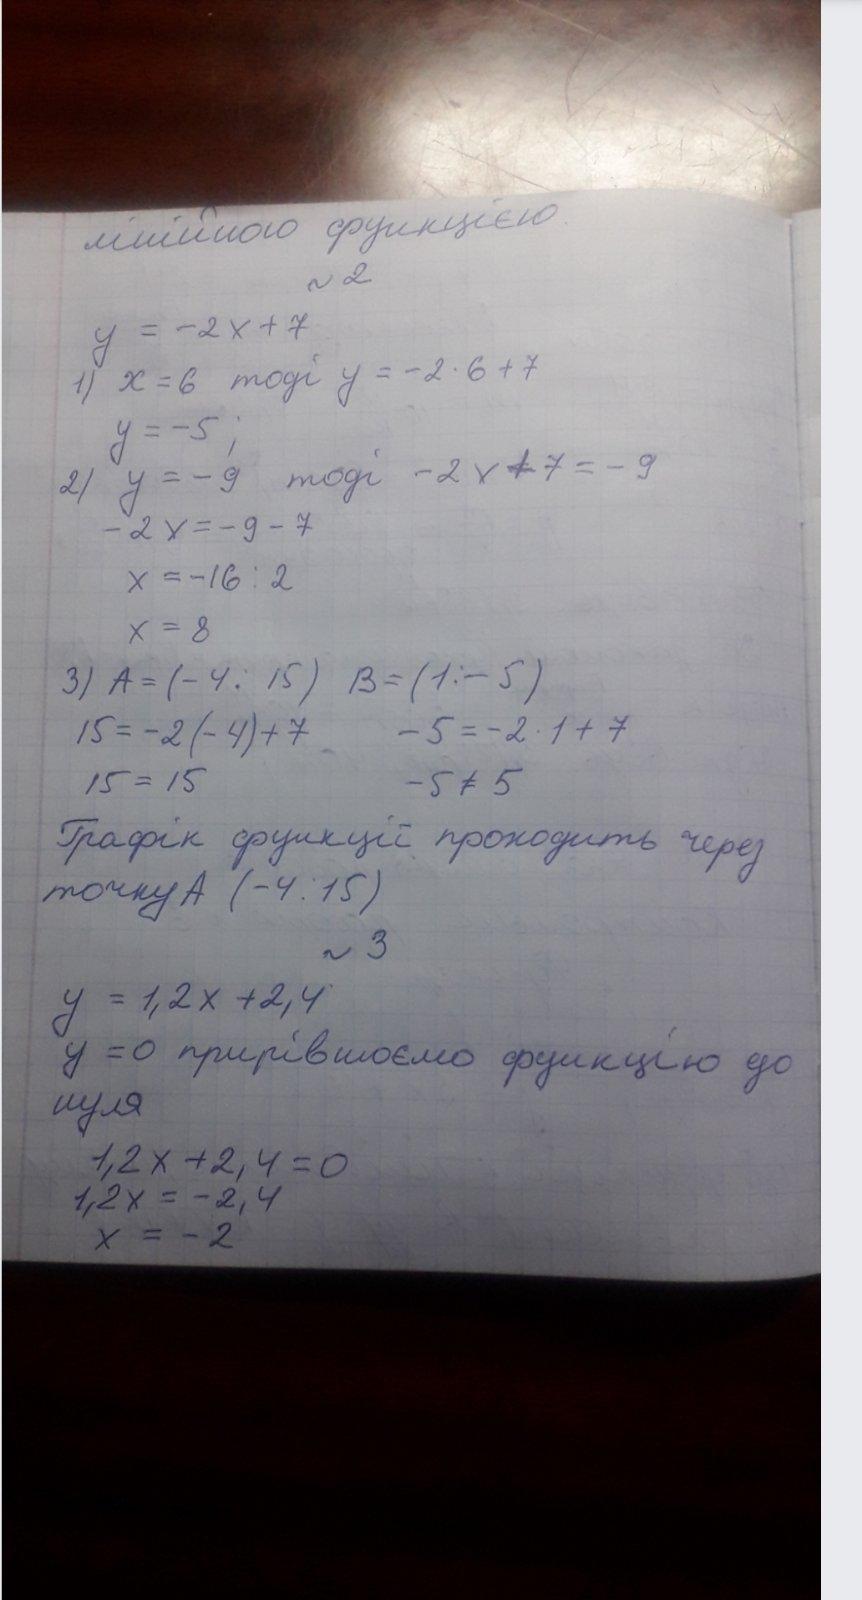 лінійною функцією.
~ 2
y = -2x + 7
1) x = 6 тоді y = -2·6 + 7
y = -5;
2) y = -9 тоді -2x + 7 = -9
-2x = -9 - 7
x = -16 : 2
x = 8
3) A = (-4 : 15) B = (1 : -5)
15 = -2(-4) + 7 -5 = -2·1 + 7
15 = 15 -5 ≠ 5
Графік функції проходить через
точку A (-4 : 15)
~ 3
y = 1,2x + 2,4
y = 0 прирівнюємо функцію до
нуля
1,2x + 2,4 = 0
1,2x = -2,4
x = -2